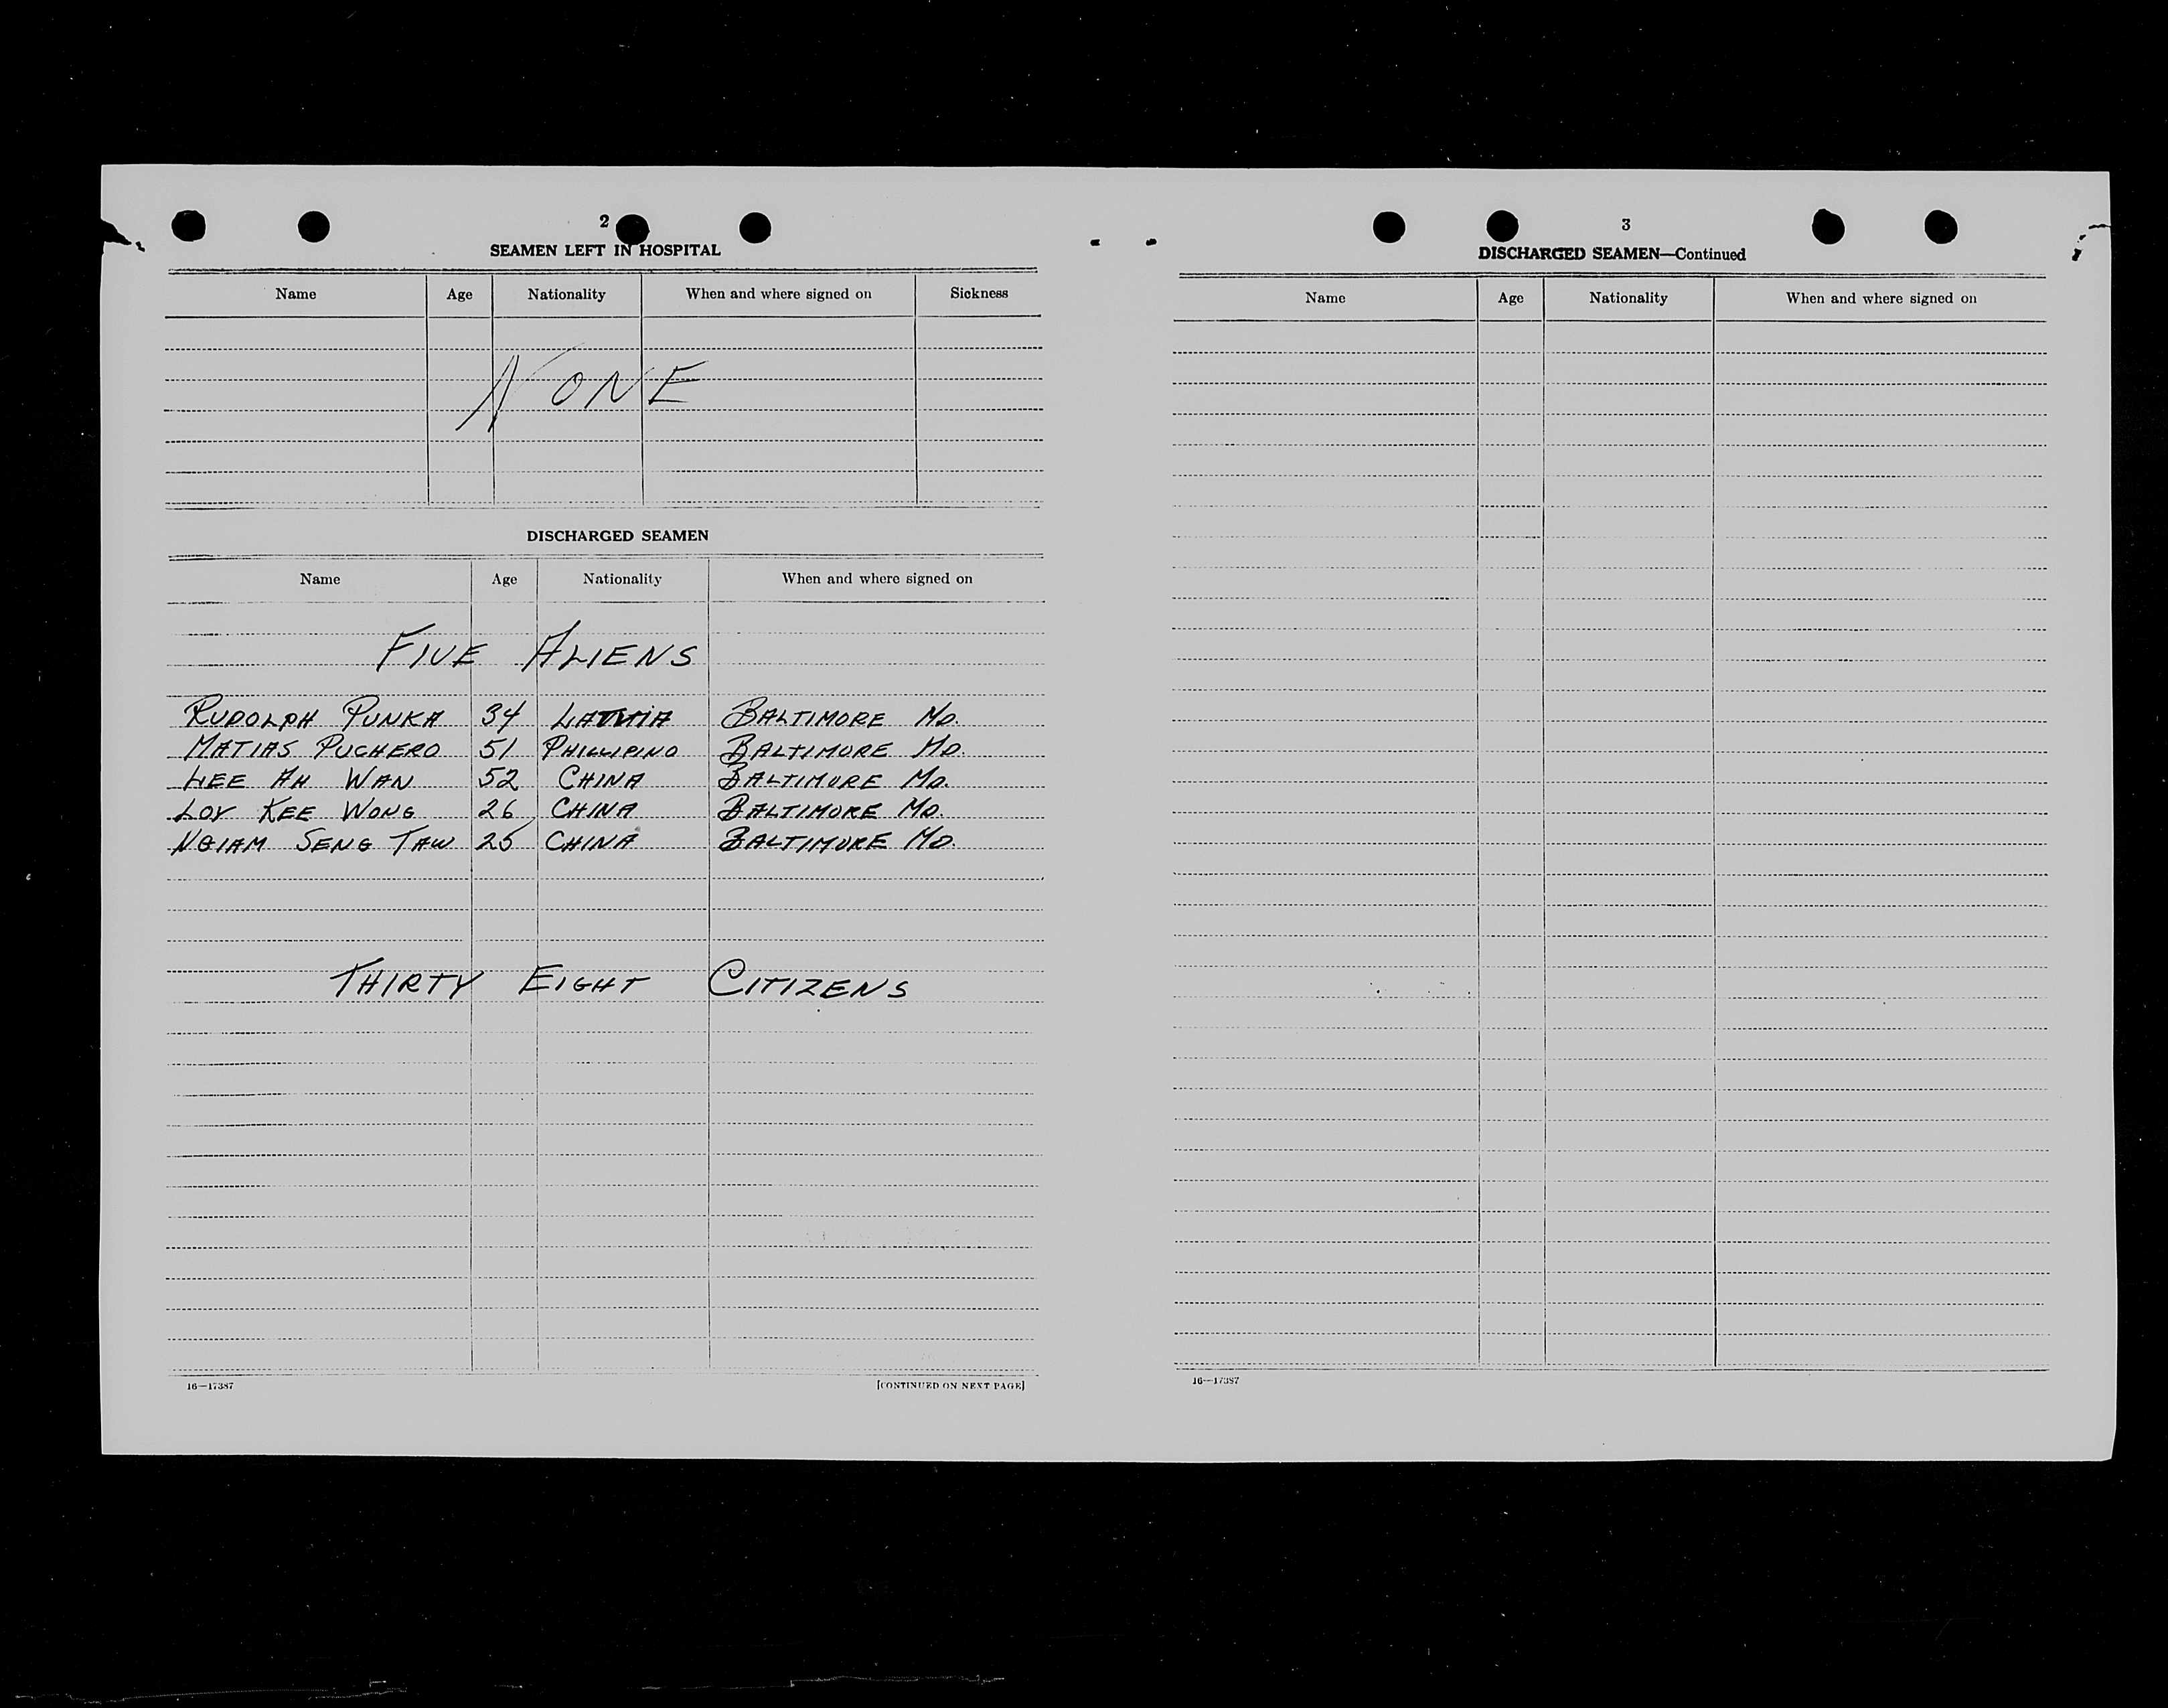 2
SEAMEN LEFT IN HOSPITAL
Name Age Nationality When and where signed on Sickness
NONE
DISCHARGED SEAMEN
Name Age Nationality When and where signed on
FIVE ALIENS
RUDOLPH PUNKA 34 LATVIA BALTIMORE MD.
MATIAS PUCHERO 51 PHILLIPINO BALTIMORE MD.
LEE AH WAN 52 CHINA BALTIMORE MD.
LOY KEE WONG 26 CHINA BALTIMORE MD.
NGIAM SENG TAW 25 CHINA BALTIMORE MD.
THIRTY EIGHT CITIZENS
16—17387 [CONTINUED ON NEXT PAGE]
3
DISCHARGED SEAMEN—Continued
Name Age Nationality When and where signed on
16—17387